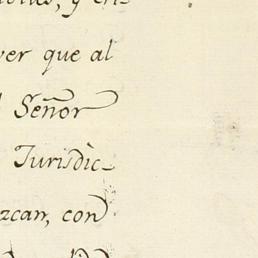 ver que al
Señor
Jurisdic-
zcan, con